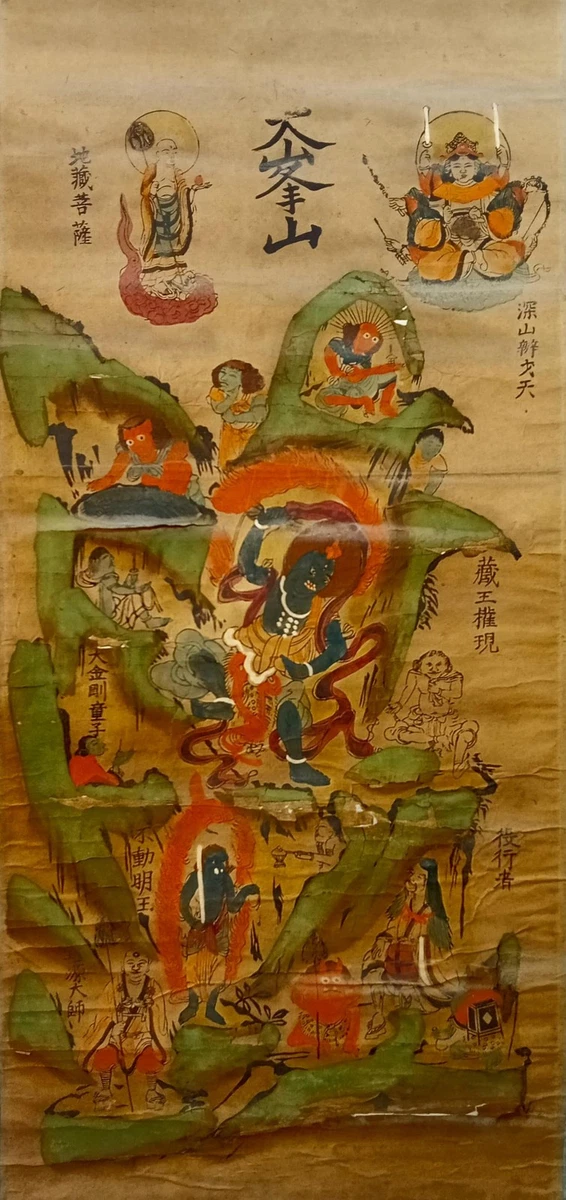 大峯山
地藏菩薩
深山辨才天
藏王權現
大金剛童子
不動明王
役行者
源大師